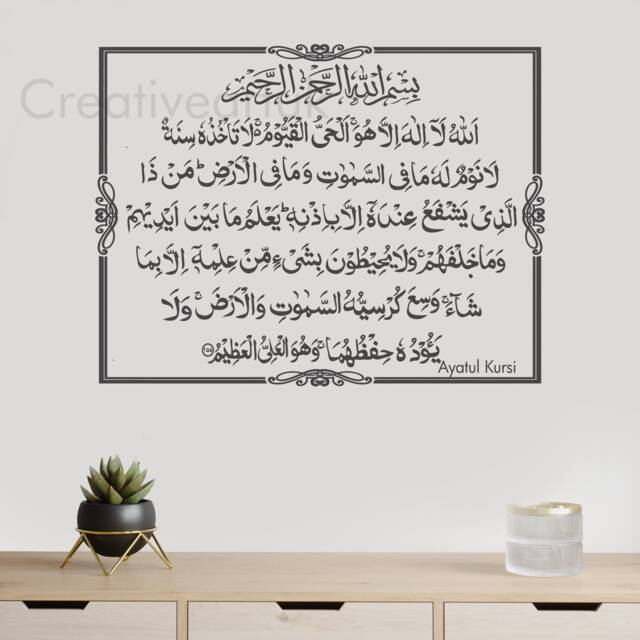 بِسْمِ اللهِ الرَّحْمٰنِ الرَّحِيْمِ
اَللهُ لَآ اِلٰهَ اِلَّا هُوَ ۚ اَلْحَيُّ الْقَيُّوْمُ ۚ لَا تَاْخُذُهٗ سِنَةٌ
لَا نَوْمٌ لَهٗ مَا فِى السَّمٰوٰتِ وَمَا فِى الْاَرْضِ ؕ مَنْ ذَا
الَّذِىْ يَشْفَعُ عِنْدَهٗٓ اِلَّا بِاِذْنِهٖ ؕ يَعْلَمُ مَا بَيْنَ اَيْدِيْهِمْ
وَمَا خَلْفَهُمْ ۚ وَلَا يُحِيْطُوْنَ بِشَىْءٍ مِّنْ عِلْمِهٖٓ اِلَّا بِمَا
شَآءَ ۚ وَسِعَ كُرْسِيُّهُ السَّمٰوٰتِ وَالْاَرْضَ ۚ وَلَا
يَـُٔوْدُهٗ حِفْظُهُمَا ۚ وَهُوَ الْعَلِىُّ الْعَظِيْمُ ۲۵۵
Ayatul Kursi